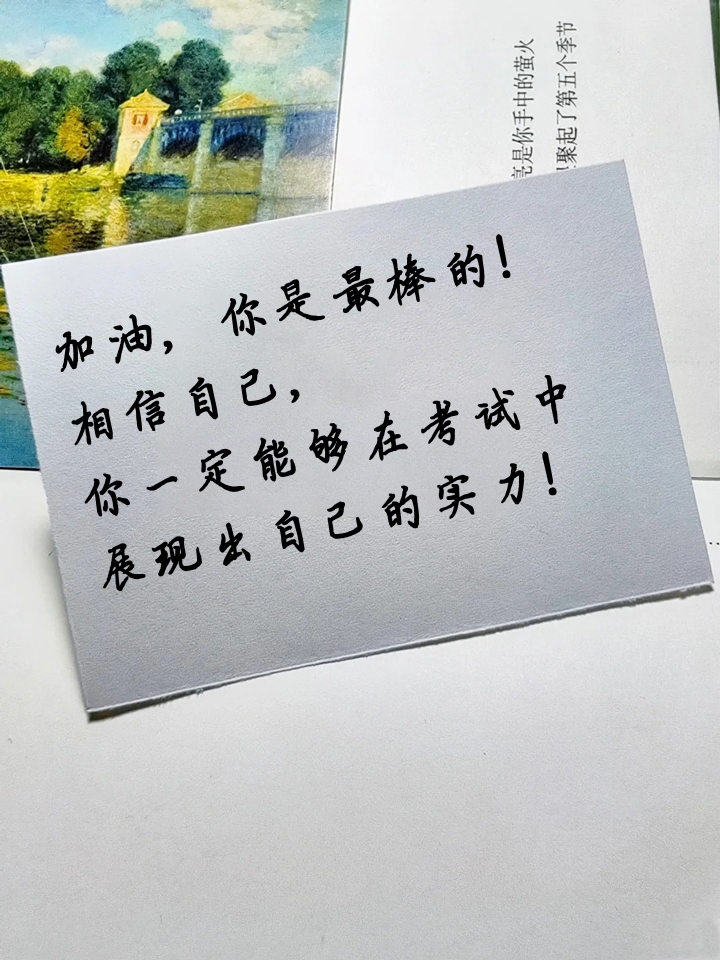 加油，你是最棒的！
相信自己，
你一定能够在考试中
展现出自己的实力！
亮是你手中的萤火
聚起了第五个季节